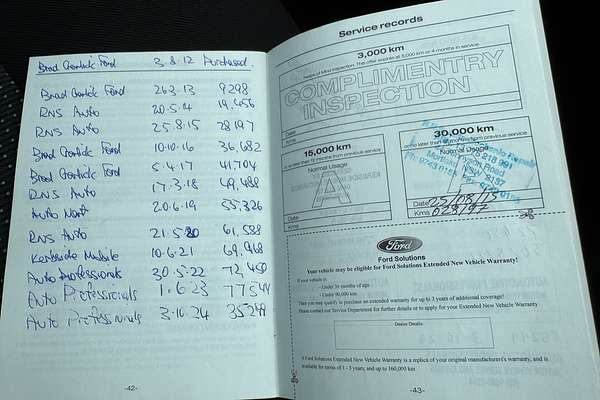 Brad Garlick Ford 3.8.12 Purchased.
Brad Garlick Ford 26.3.13 9298
RNS Auto 20.5.14 19,456
RNS Auto 25.8.15 28197
Brad Garlick Ford 10.10.16 36,682
Brad Garlick Ford 5.4.17 41704
RNS Auto 17.3.18 49,488
Auto 20.6.19 55,326
RNS Auto 21.5.20 61,588
Kerbside Mobile 10.6.21 69,968
Auto Professionals 30.5.22 73,450
Auto Professionals 1.6.23 77544
Auto Professionals 3.10.24
-42-
Service records
3,000 km
COMPLIMENTRY
INSPECTION
Date
Kms
15,000 km
or no later than 12 months from previous service
Normal Usage
A
Date
Kms
30,000 km
or no later than 12 months from previous service
Normal Usage
Date 25/08/15
Kms 028197
Ford
Ford Solutions
Your vehicle may be eligible for Ford Solutions Extended New Vehicle Warranty!
If your vehicle is
- Under 36 months of age
- Under 90,000 km
Then you may qualify to purchase an extended warranty for up to 3 years of additional coverage!
Please contact our Service Department for further details or to apply for your Extended New Vehicle Warranty
Dealer Details
A Ford Solutions Extended New Vehicle Warranty is a replica of your original manufacturer's warranty, and is
available for terms of 1 - 3 years, and up to 160,000 km
-43-